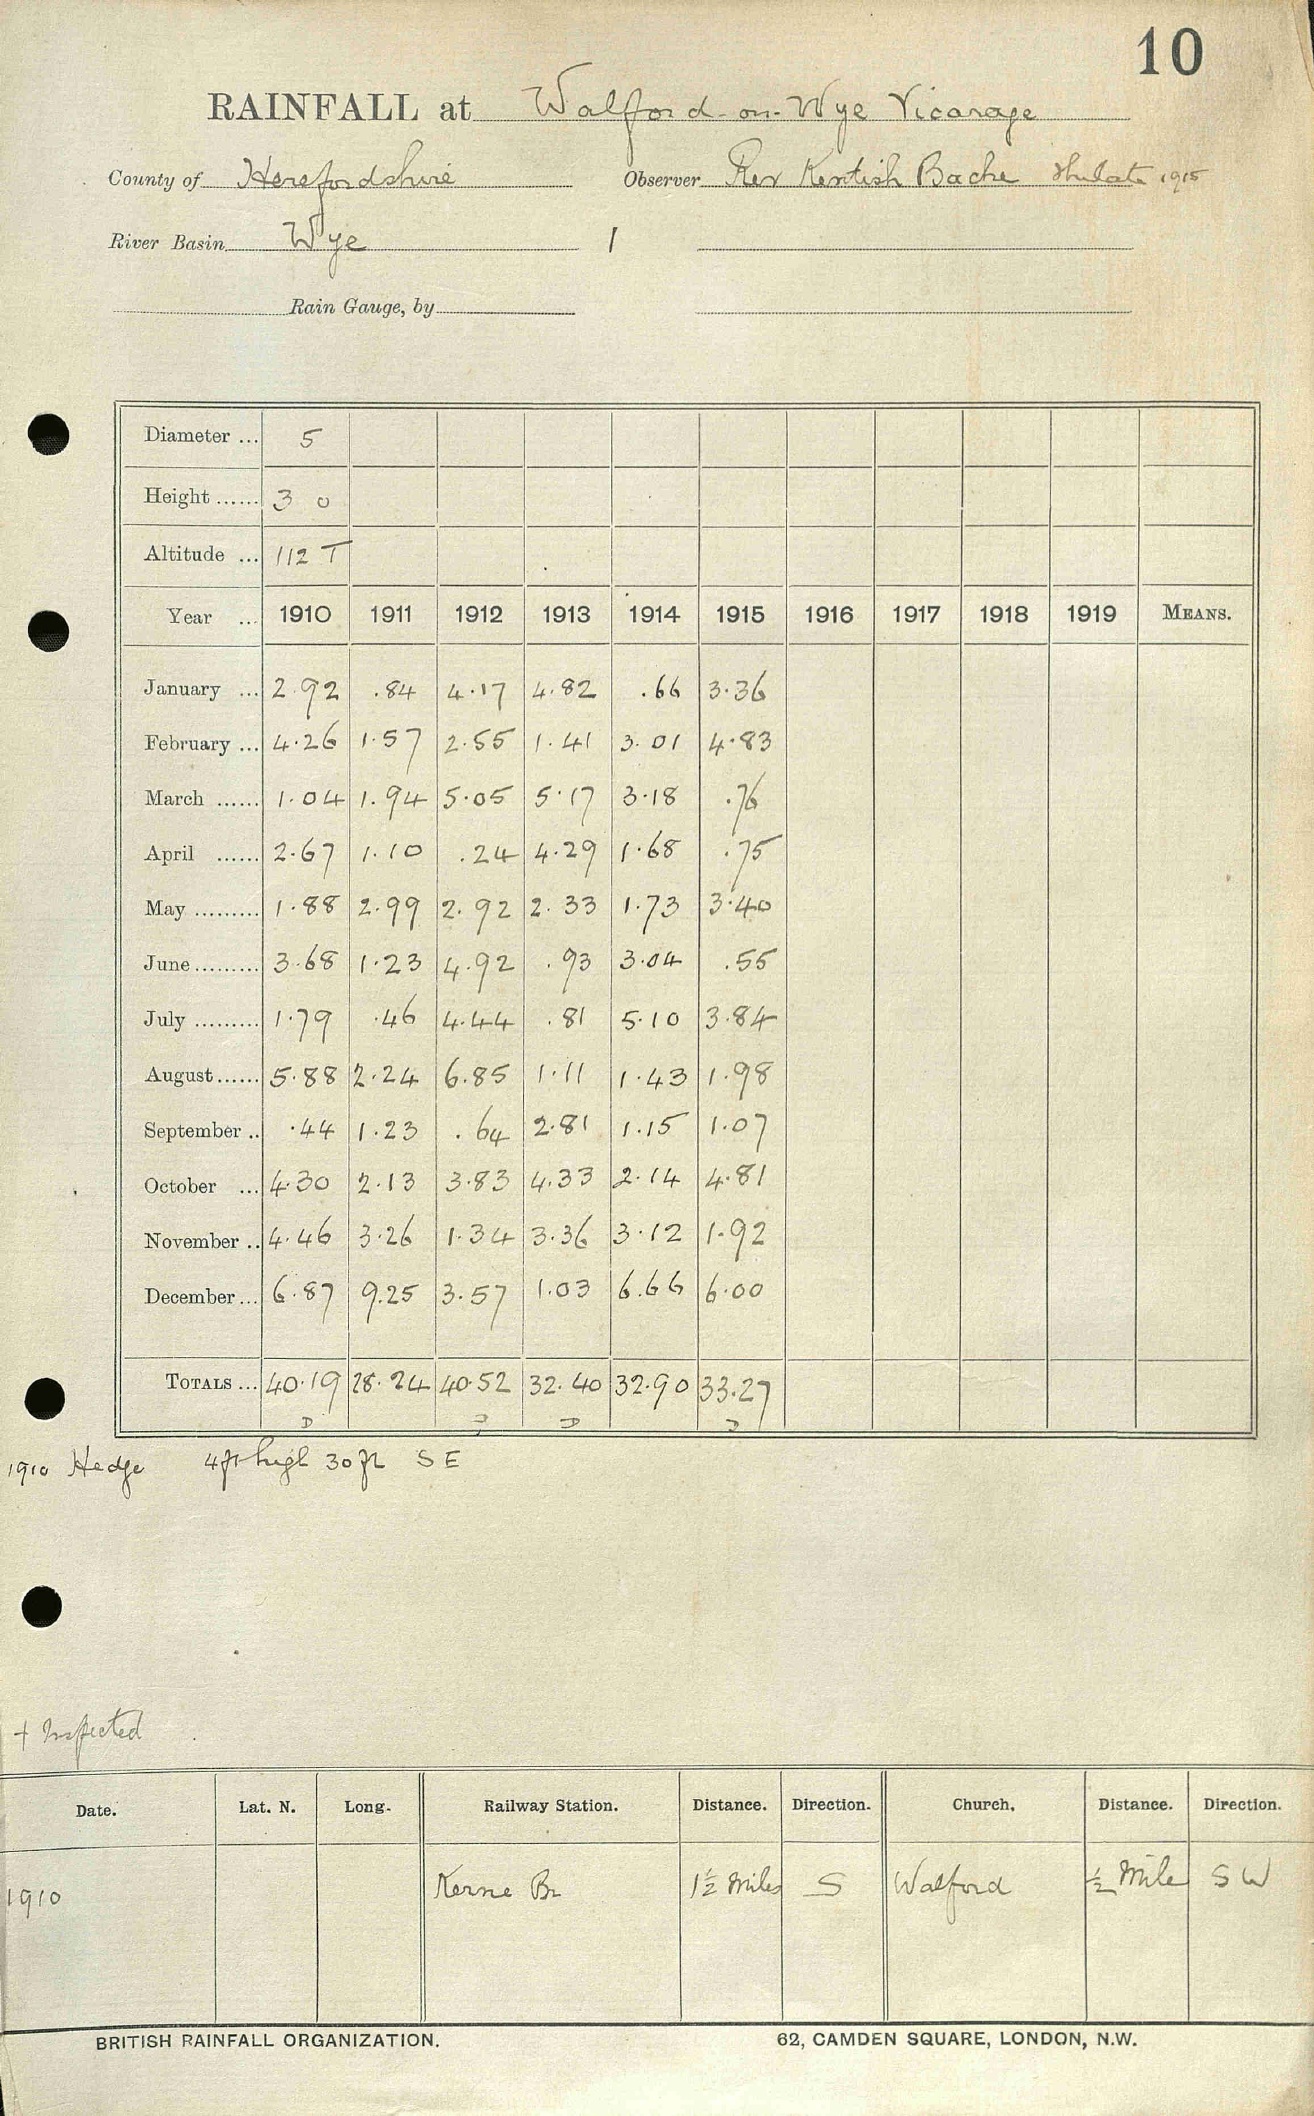 10
RAINFALL at Walford-on-Wye Vicarage
County of Herefordshire Observer Rev Kentish Bache 1915
River Basin Wye 1
Rain Gauge, by
Diameter ... 5
Height ...... 3 0
Altitude ... 112 T
Year ... 1910 1911 1912 1913 1914 1915 1916 1917 1918 1919 MEANS.
January ... 2.92 .84 4.17 4.82 .66 3.36
February ... 4.26 1.57 2.55 1.41 3.01 4.83
March ...... 1.04 1.94 5.05 5.17 3.18 .76
April ...... 2.67 1.10 .24 4.29 1.68 .75
May ......... 1.88 2.99 2.92 2.33 1.73 3.40
June ......... 3.68 1.23 4.92 .93 3.04 .55
July ......... 1.79 .46 4.44 .81 5.10 3.84
August ...... 5.88 2.24 6.85 1.11 1.43 1.98
September .. .44 1.23 .64 2.81 1.15 1.07
October ... 4.30 2.13 3.83 4.33 2.14 4.81
November .. 4.46 3.26 1.34 3.36 3.12 1.92
December ... 6.87 9.25 3.57 1.03 6.66 6.00
TOTALS ... 40.19 28.24 40.52 32.40 32.90 33.27
D D D D
1910 Hedge 4ft high 30 ft SE
+ Inspected
Date. Lat. N. Long. Railway Station. Distance. Direction. Church. Distance. Direction.
1910 Kerne Br 1½ Miles S Walford ½ Mile SW
BRITISH RAINFALL ORGANIZATION. 62, CAMDEN SQUARE, LONDON, N.W.